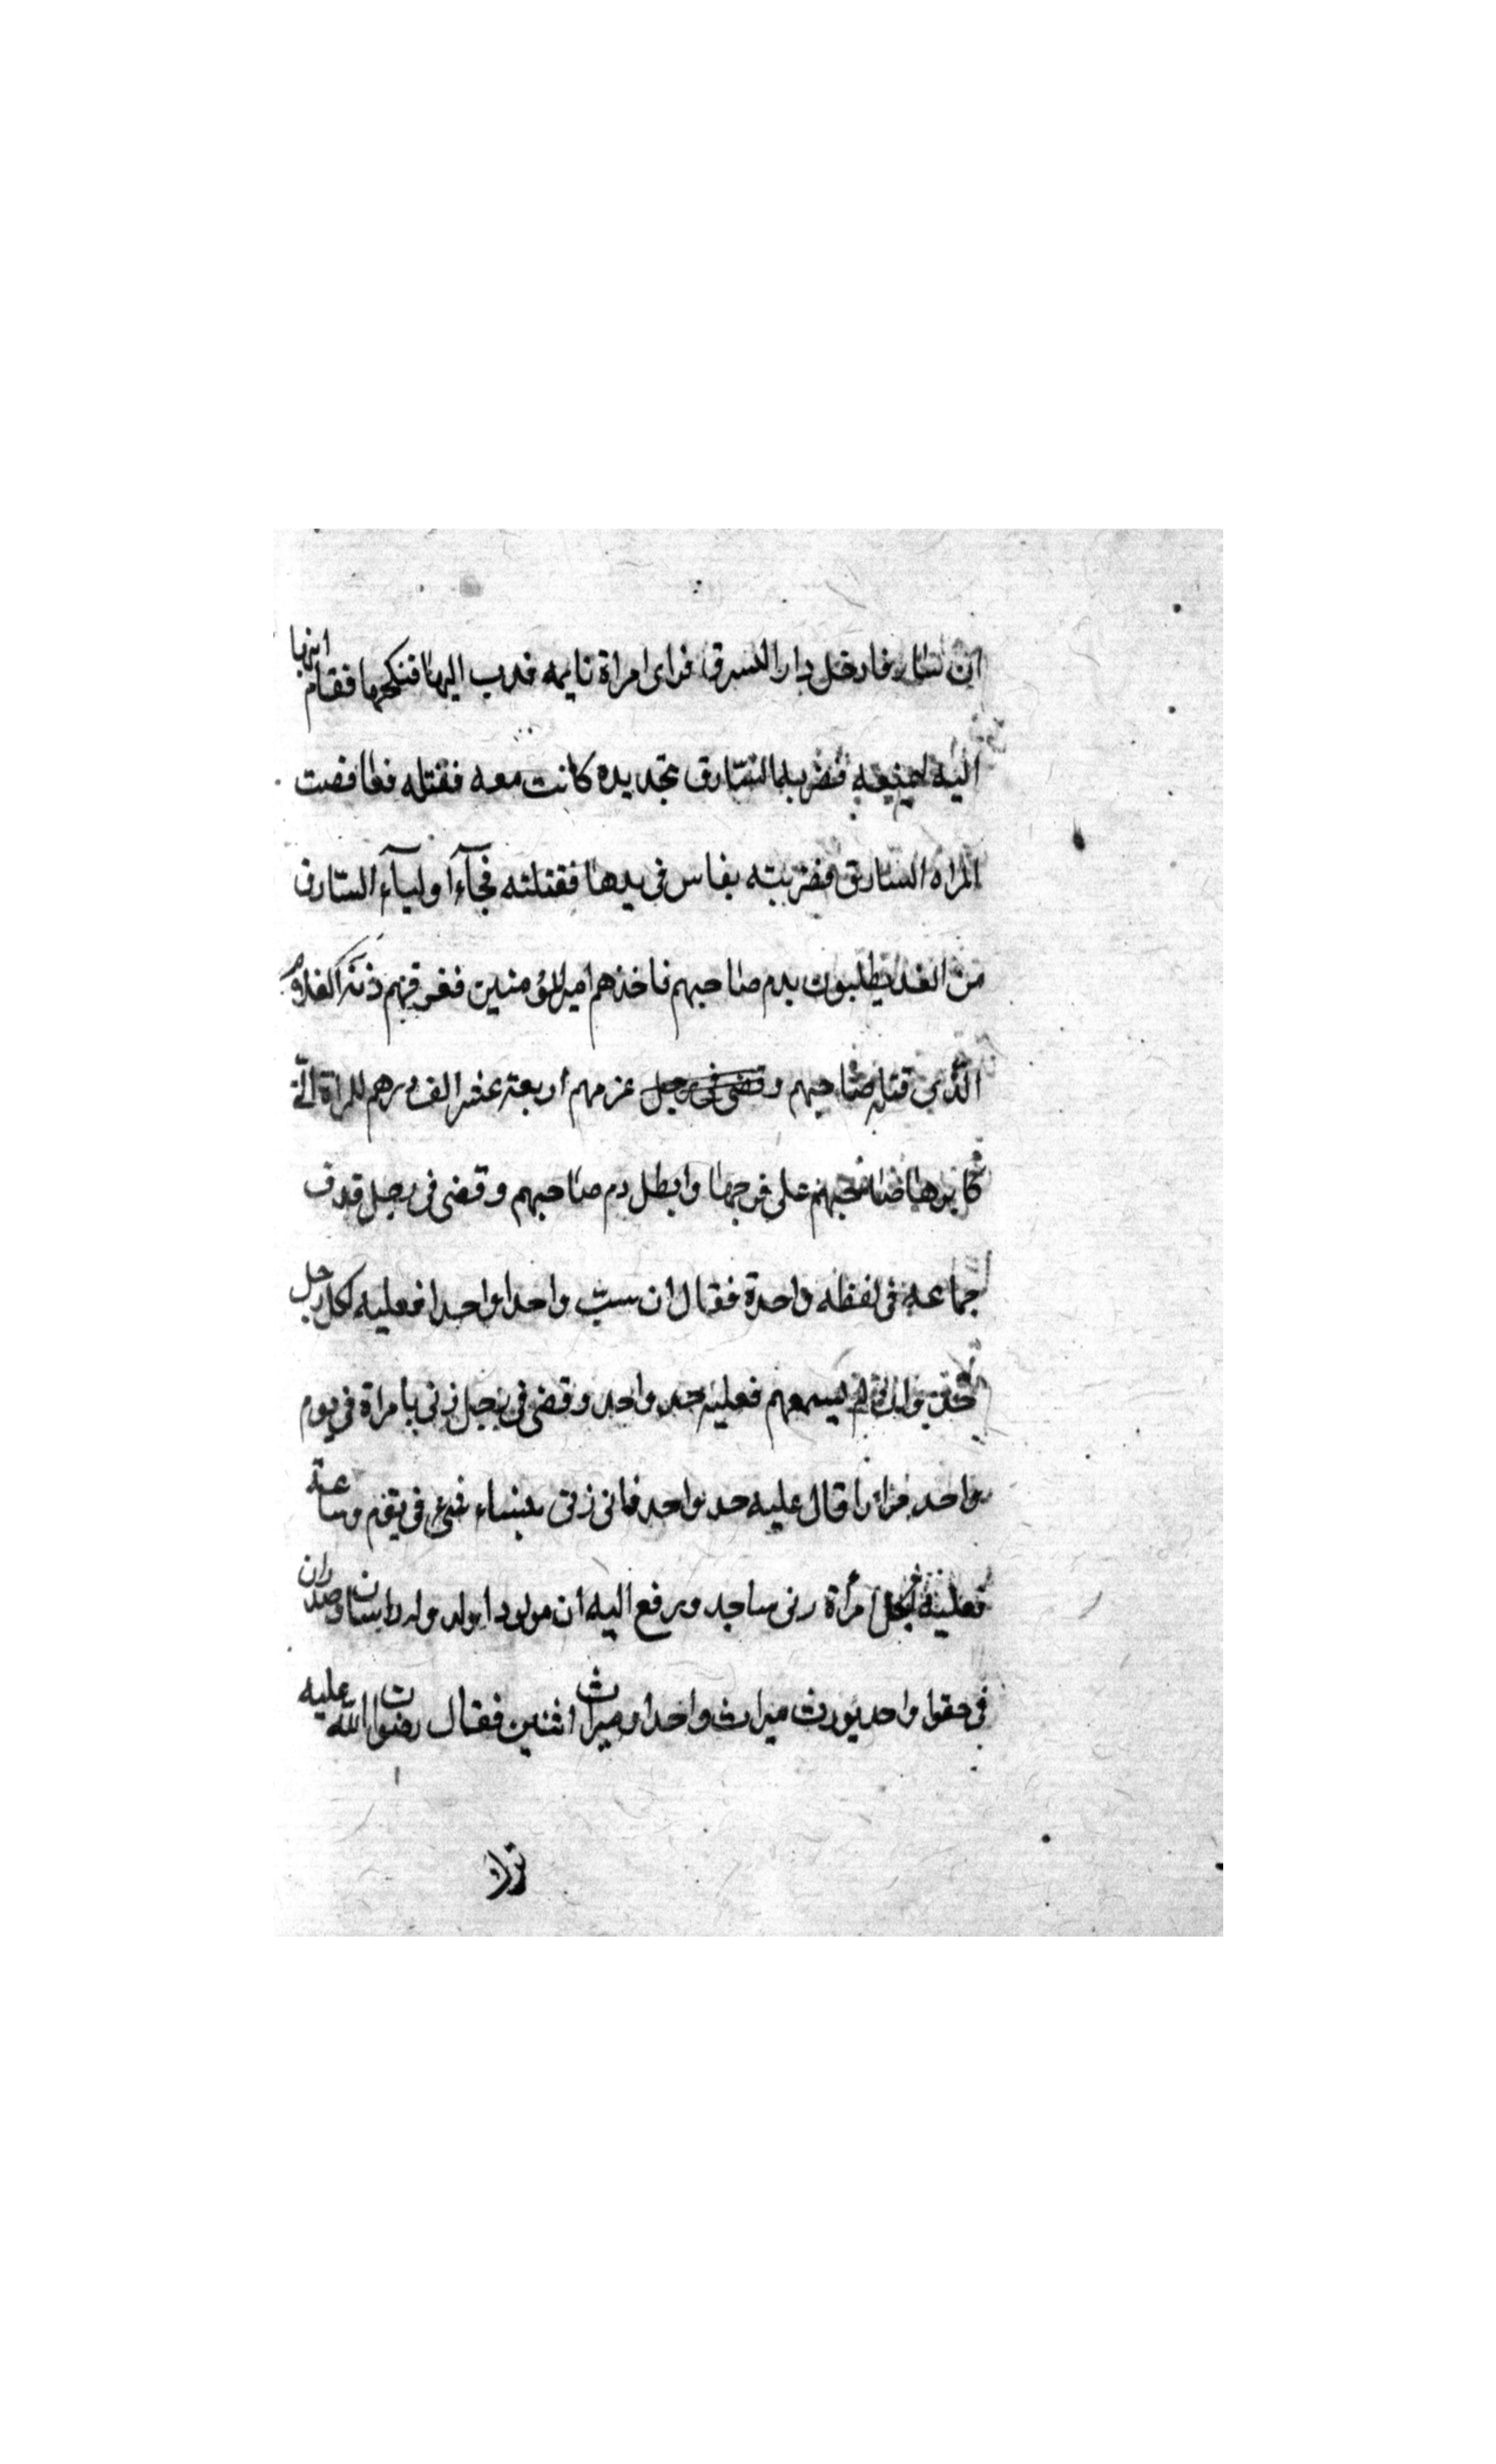 ان سارقا دخل دارا ليسرق فراى امراة نايمه فدب اليها فنكحها فقام ابنها
اليه ليمنعه فضربه السارق بحديده كانت معه فقتله فغافصت
المراه السارق فضربته بفاس فى يدها فقتلته فجآءا وليآء السارق
من الغد يطلبون بدم صاحبهم فاخذهم امير المؤمنين فغرقهم دية الغلام
الذى قتله صاحبهم وقضى فى رجل غرمهم أربعة عشر الف درهم للمراة التى
كابرها صاحبهم على فرجها وابطل دم صاحبهم وقضى فى رجل قذف
جماعه فى لفظه واحدة فقال ان سب واحدا واحدا فعليه لكل رجل
حد وان لم يسمهم فعليه حد واحد وقضى فى رجل زنى بامراة فى يوم
واحد مرارا قال عليه حد واحد فانى زنى بنساء شتى فى يوم وساعة
فعليه لكل امرأة زنى بها حد ورفع اليه ان مولودا ولد وله راسان وصدران
فى حقوا واحد يورث ميراث واحد او ميراث اثنين فقال رضوان الله عليه